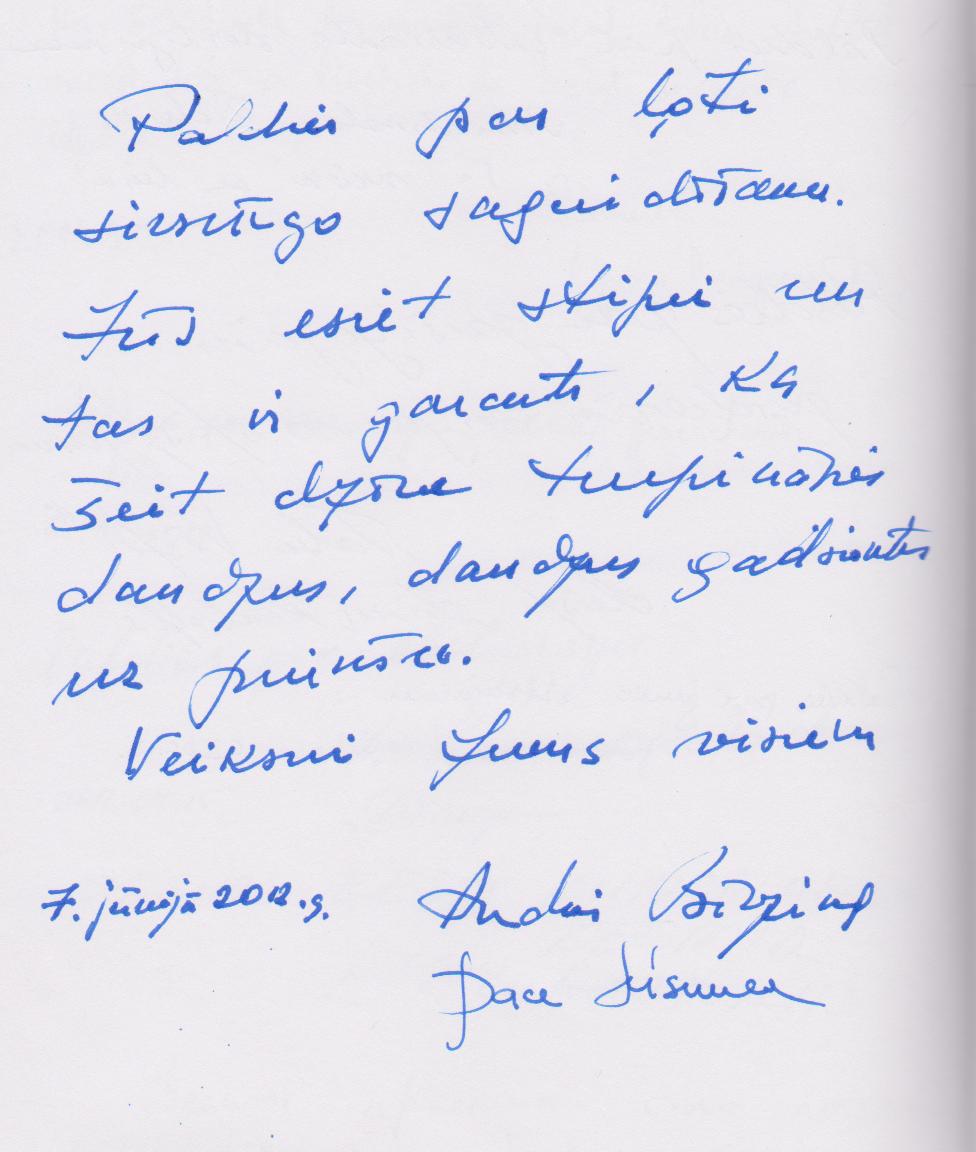 Paldies par ļoti
sirsnīgo sagaidīšanu.
Jūs esiet stipri un
tas ir garants, ka
šeit dzīve turpināsies
daudzus, daudzus gadsimtus
uz priekšu.
Veiksmi Jums visiem
7. jūnijā 2012.g.
Andris Bērziņš
Dace